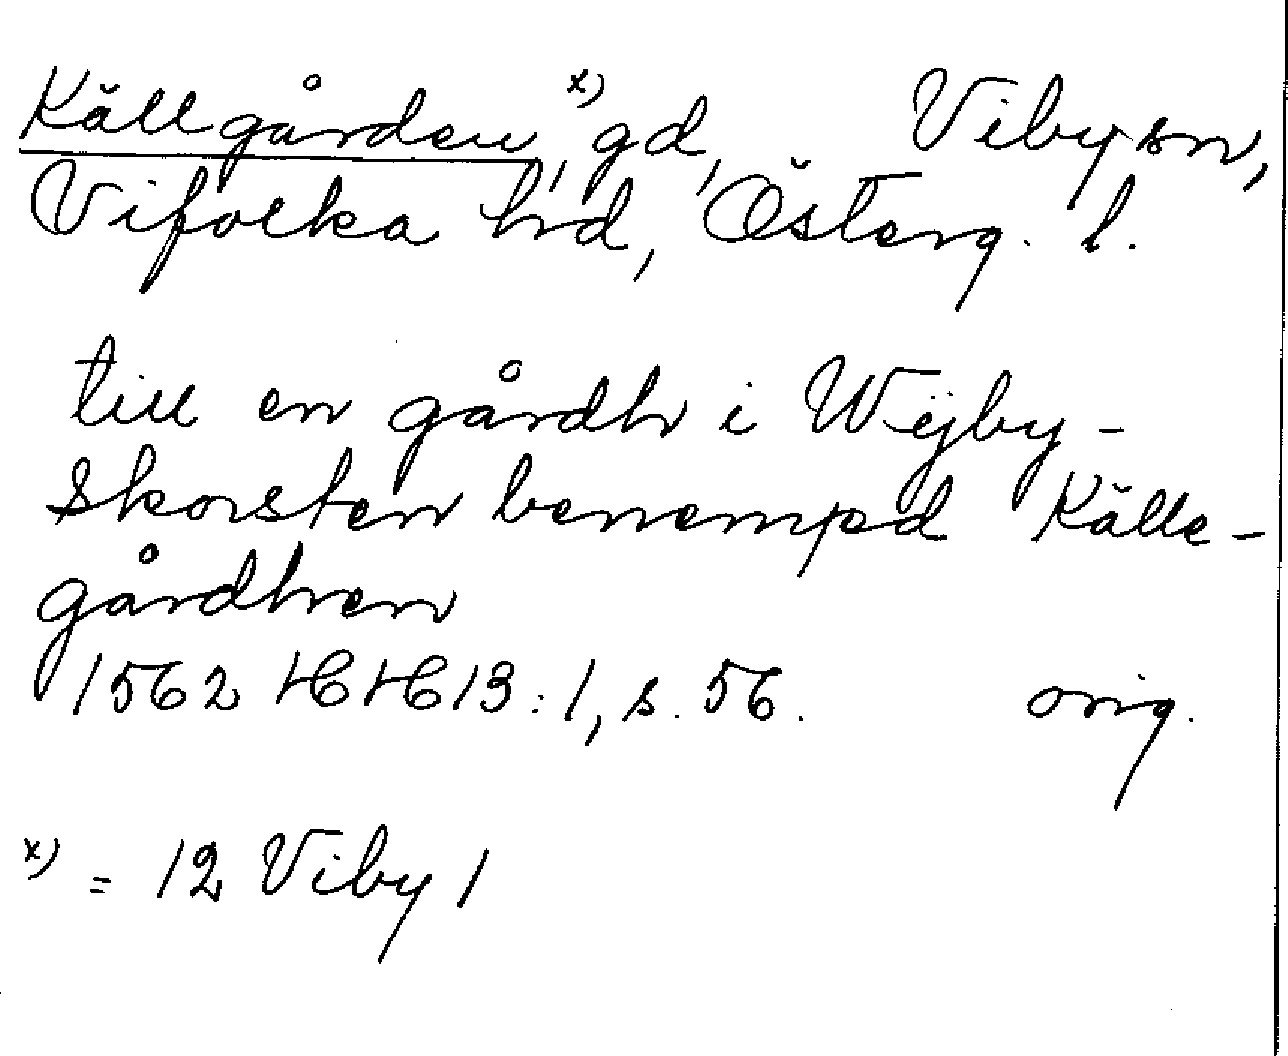 Källgården,ˣ⁾ gd, Viby sn,
Vifolka hd, Österg. l.
till en gårdh i Wijby-
skorsten benempd Källe-
gårdhen
1562 HH 13:1, s. 56. orig.
x) = 12 Viby 1